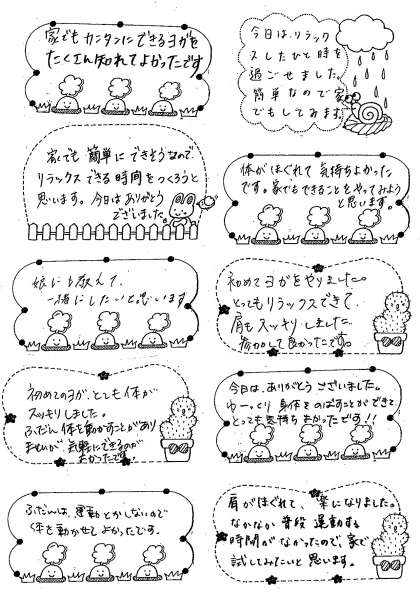 家でもカンタンにできるヨガを
たくさん知れてよかったです
今日は、リラック
スしたひと時を
過ごせました。
簡単なので家
でもしてみます。
家でも簡単にできそうなので、
リラックスできる時間をつくろうと
思います。今日はありがとう
ございました。
体がほぐれて気持ちよかった
です。家でもできることをやってみよう
と思います。
娘にも教えて、
一緒にしたいと思います
初めてヨガをやりました。
とってもリラックスできて、
肩もスッキリしました
参加して良かったです。
初めてのヨガ、とても体が
スッキリしました。
ふだん体を動かすことがあり
ませんが気軽にできるのが
よかったです。
今日は、ありがとうございました。
ゆーっくり身体をのばすことができて、
とっても気持ちよかったです!!
ふだんは、運動とかしないので
体を動かせてよかったです。
肩がほぐれて、楽になりました。
なかなか普段運動する
時間がなかったので、家で
試してみたいと思います。